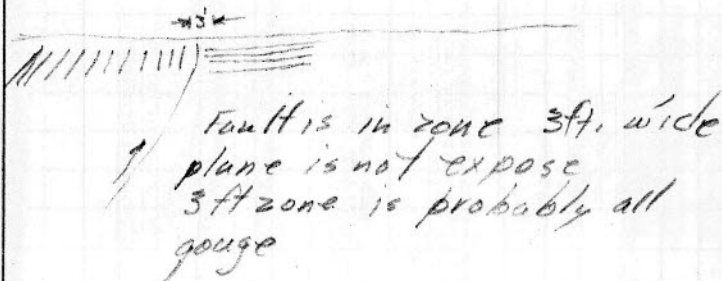 3'
Fault is in zone 3ft. wide
plane is not expose
3ft zone is probably all
gouge